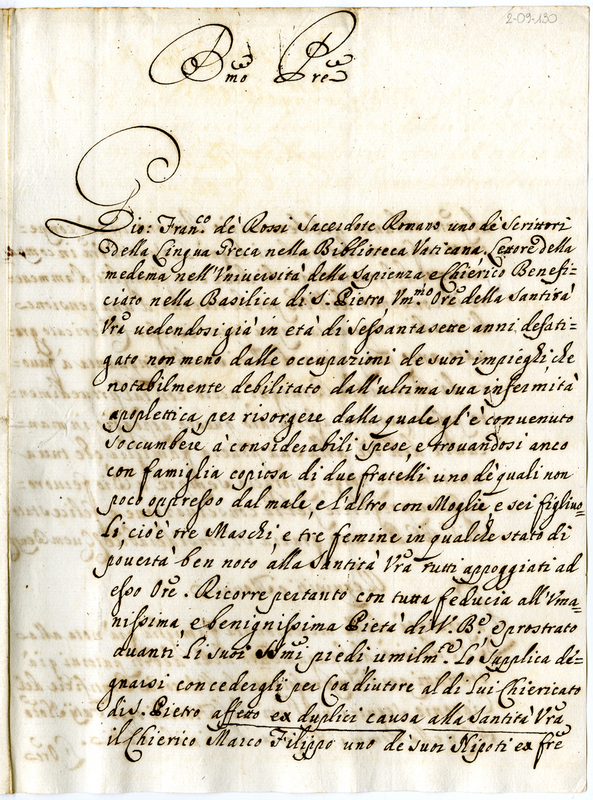 2-09-130
B.mo Pre
Gio: Fran.co de Rossi Sacerdote Romano uno de Scrittori
della Lingua Greca nella Biblioteca Vaticana, Lettore della
medema nell'Vniversità della Sapienza e Chierico Benefi=
ciato nella Basilica di S. Pietro, Vm.mo Ore della Santità
Vrà vedendosi già in età di Sessantasette anni defati=
gato non meno dalle occupazioni de suoi impieghi che
notabilmente debilitato dall'ultima sua infermità
apoplettica, per risorgere dalla quale gl'è convenuto
soccumbere à considerabili spese, e trovandosi anco
con famiglia copiosa di due fratelli uno de quali non
poco oppresso dal male, e l'altro con Moglie, e sei figliuo=
li, cio'è tre Maschi, e tre femine in qualche stato di
povertà ben noto alla Santità Vrà tutti appoggiati ad
esso Ore. Ricorre pertanto con tutta feducia all'Vma=
nissima e benignissima Pietà di V. B.e, e prostrato
avanti li suoi SSmi piedi umilm.e Lo supplica de=
gnarsi concedergli per Coadiutore al di Lui Chiericato
di S. Pietro affetto ex duplici causa alla Santità Vrà
il Chierico Marco Filippo uno de suoi Nipoti ex frē